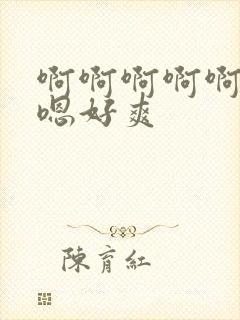 啊啊啊啊啊
嗯好爽
陳育紅